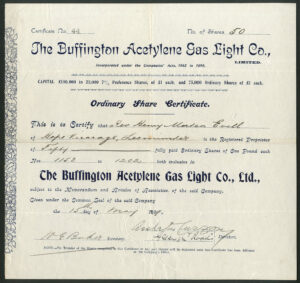 Certificate No. 44 No. of Shares 50
The Buffington Acetylene Gas Light Co.,
LIMITED.
Incorporated under the Companies' Acts, 1862 to 1898.
CAPITAL £100,000 in 25,000 7½% Preference Shares of £1 each and 75,000 Ordinary Shares of £1 each.
Ordinary Share Certificate.
This is to Certify that Geo Henry Morton
of Hope Cottage, is the Registered Proprietor
of Fifty fully paid Ordinary Shares of One Pound each
Nos. 1153 to 1202 both inclusive in
The Buffington Acetylene Gas Light Co., Ltd.,
subject to the Memorandum and Articles of Association of the said Company.
Given under the Common Seal of the said Company
the 15th day of May
Directors.